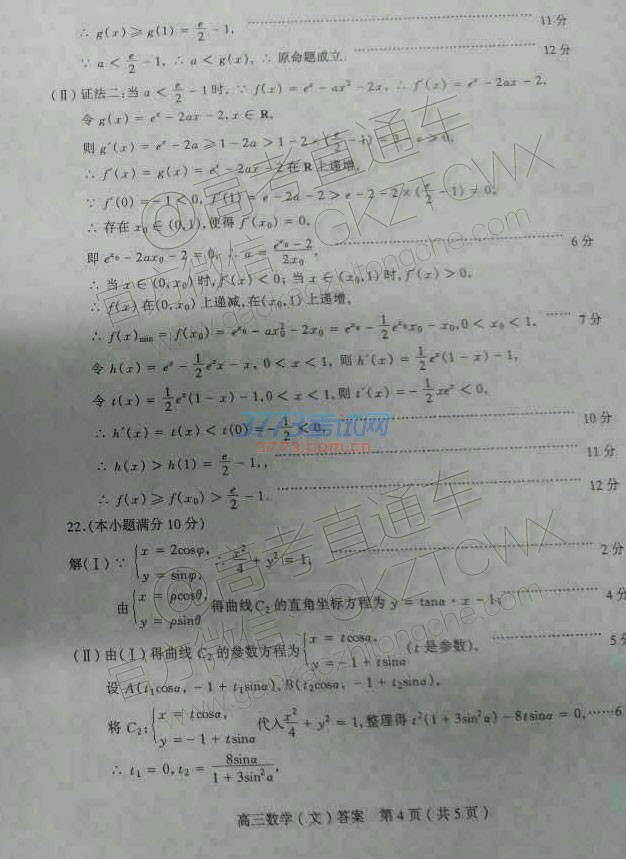 ∴ g(x)≥g(1)=e/2-1, ……………… 11分
∵ a<e/2-1, ∴ a<g(x), ∴ 原命题成立. ……………… 12分
(Ⅱ)证法二:当a<e/2-1时, ∵ f(x)=e^x-ax²-2x, ∴ f′(x)=e^x-2ax-2,
令g(x)=e^x-2ax-2,x∈R,
则g′(x)=e^x-2a≥1-2a>1-2×(e/2-1)=
∴ f′(x)=g(x)=e^x-2ax-2在R上递增,
∵ f′(0)=-1<0, f′(1)=e-2a-2>e-2-2×(e/2-1)=0,
∴ 存在x₀∈(0,1),使得f′(x₀)=0,
即e^x₀-2ax₀-2=0, ∴ a=(e^x₀-2)/(2x₀), ……………… 6分
∴ 当x∈(0,x₀)时,f′(x)<0; 当x∈(x₀,1)时,f′(x)>0,
∴ f(x)在(0,x₀)上递减,在(x₀,1)上递增,
∴ f(x)min=f(x₀)=e^x₀-ax₀²-2x₀=e^x₀-1/2e^x₀x₀-x₀,0<x₀<1, …… 7分
令h(x)=e^x-1/2e^x x-x, 0<x<1, 则h′(x)=1/2e^x(1-x)-1,
令t(x)=1/2e^x(1-x)-1,0<x<1,则t′(x)=-1/2xe^x<0,
∴ h′(x)=t(x)<t(0)=-1/2<0, ……………… 10分
∴ h(x)>h(1)=e/2-1,, ……………… 11分
∴ f(x)≥f(x₀)>e/2-1. ……………… 12分
22.(本小题满分10分)
解(Ⅰ)∵ {x=2cosφ, y=sinφ, ∴ x²/4+y²=1, ……………… 2分
由{x=ρcosθ, y=ρsinθ 得曲线C₂的直角坐标方程为y=tanα·x-1; ……………… 4分
(Ⅱ)由(Ⅰ)得曲线C₂的参数方程为{x=tcosα, y=-1+tsinα (t是参数), ……………… 5分
设A(t₁cosα, -1+t₁sinα),B(t₂cosα, -1+t₂sinα),
将C₂:{x=tcosα, y=-1+tsinα 代入x²/4+y²=1,整理得t²(1+3sin²α)-8tsinα=0, ……6
∴ t₁=0,t₂=8sinα/(1+3sin²α),
高三数学(文)答案 第4页(共5页)
@高考直通车
官方微信:GKZTCWX
gaokaozhitongche.com
3773考试网
3773.com.cn
@高考直通车
官方微信:GKZTCWX
gaokaozhitongche.com